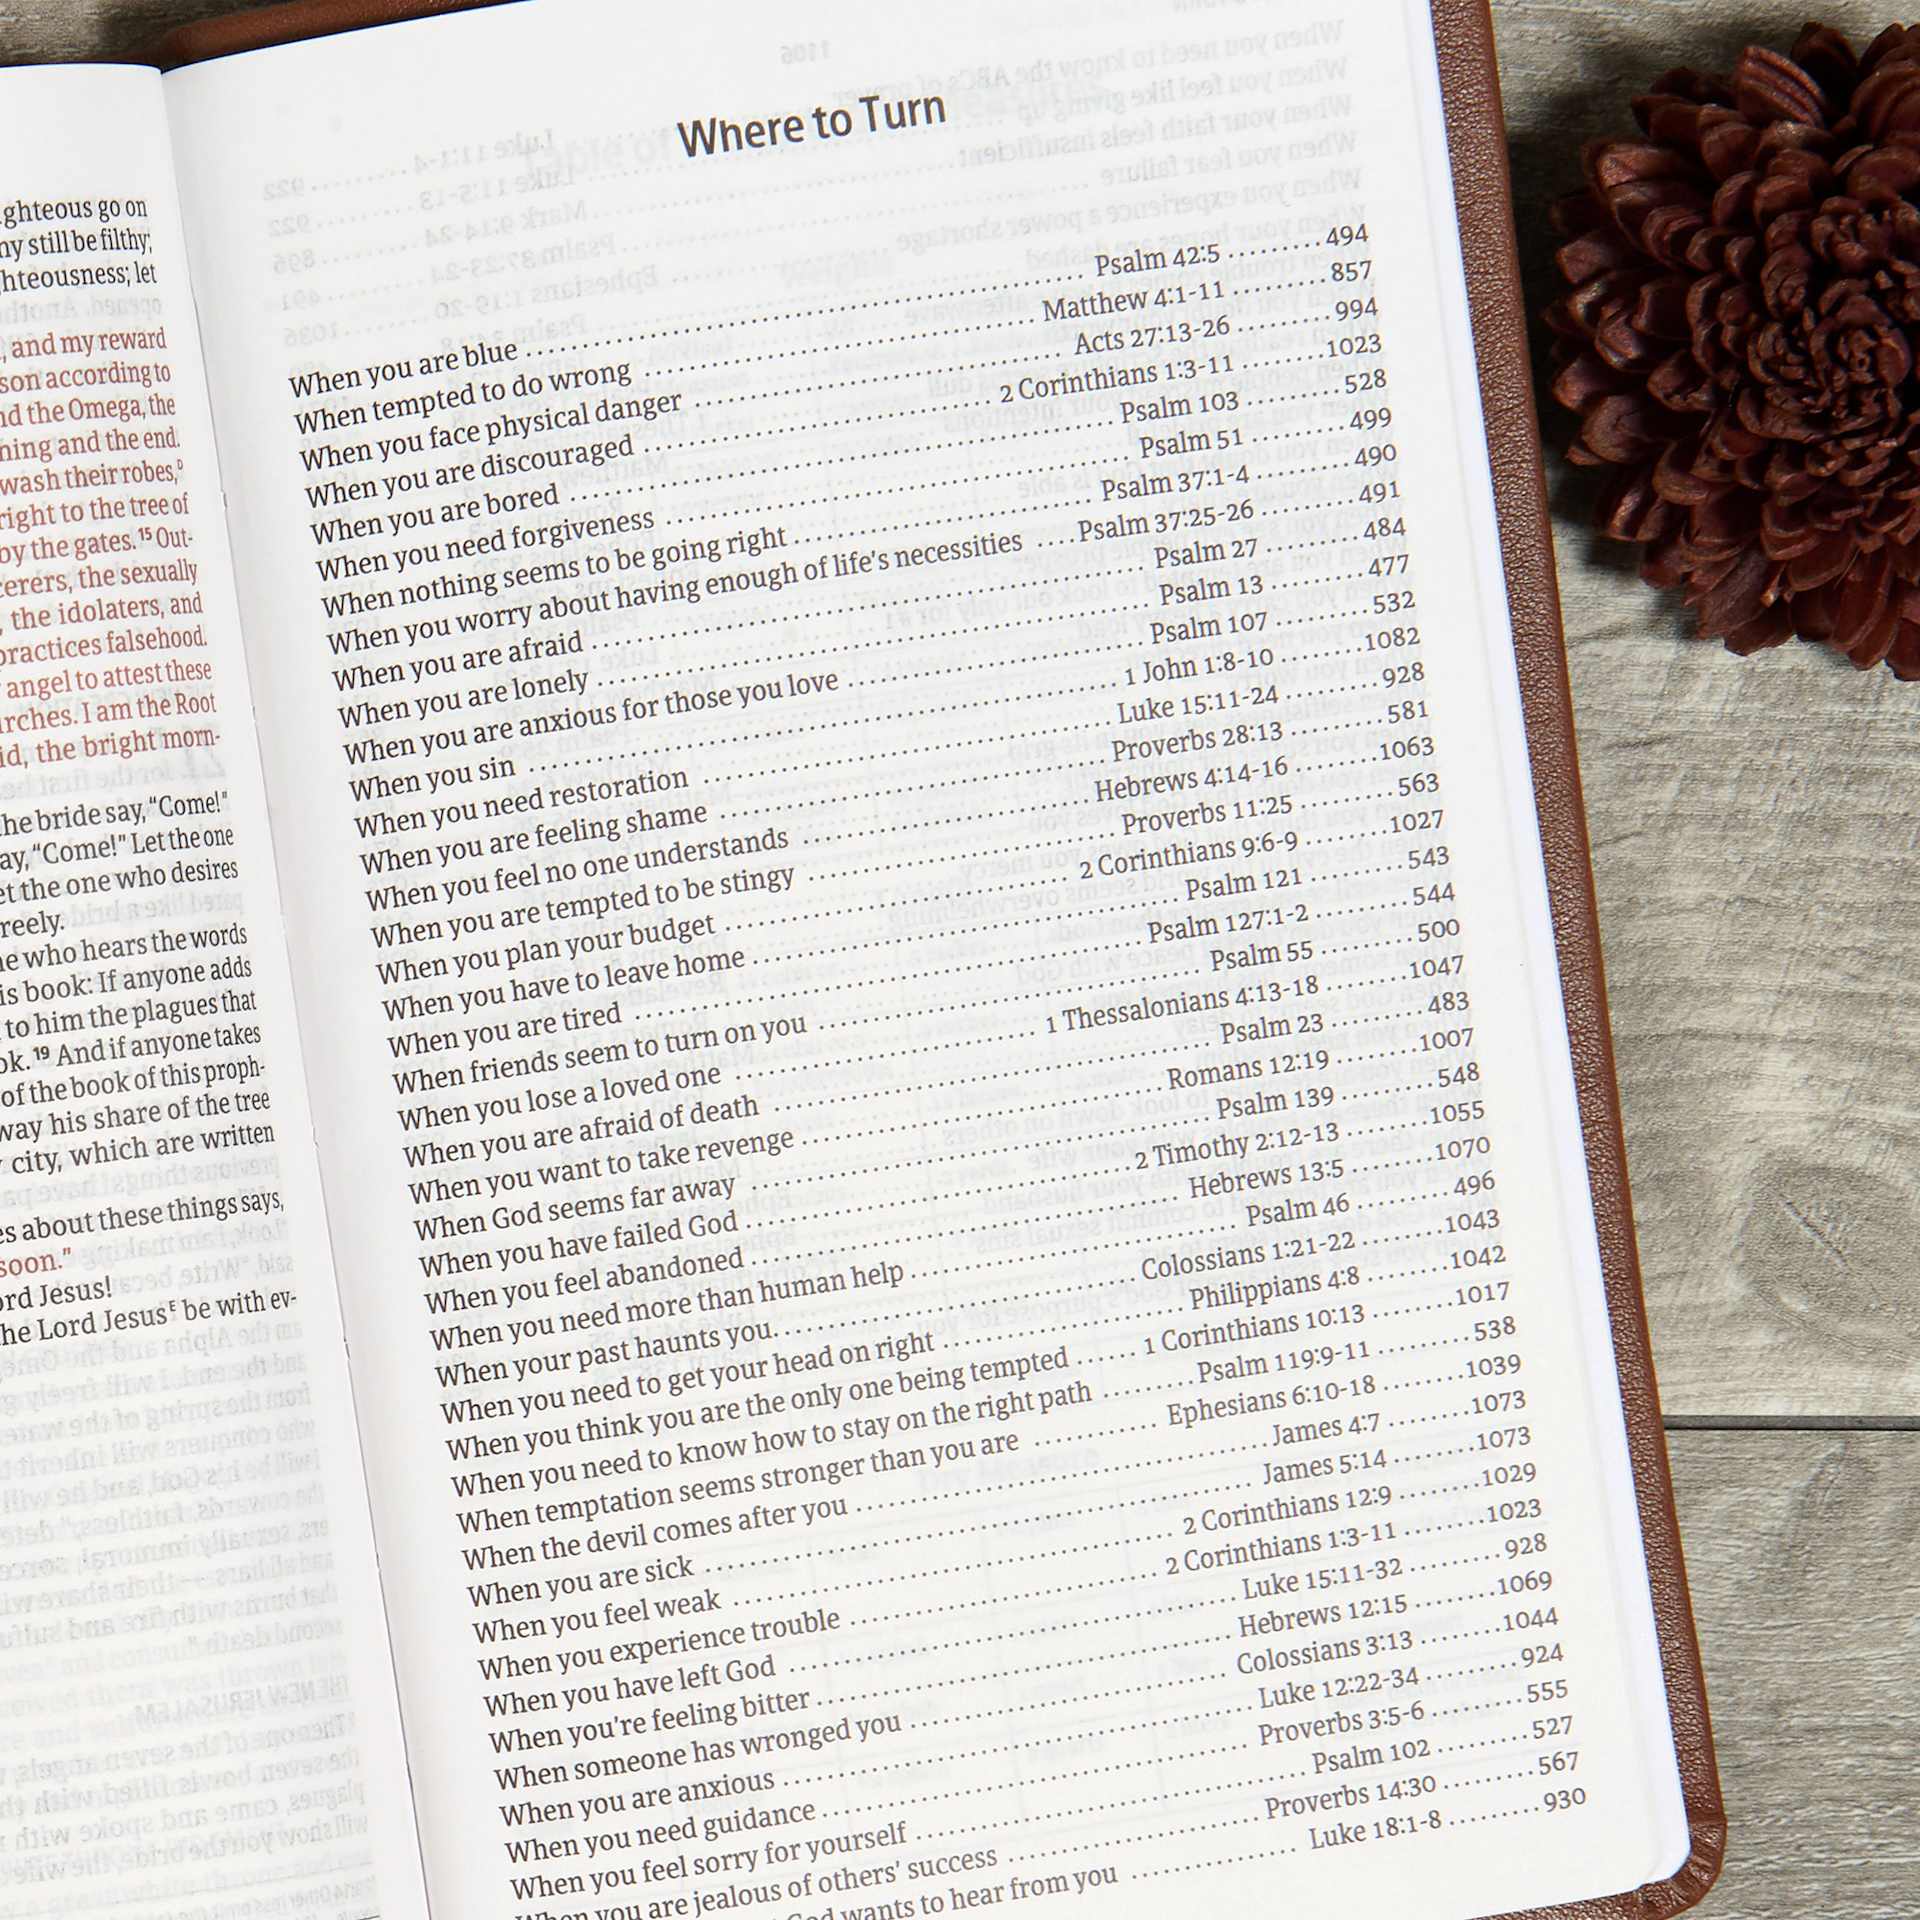 ghteous go on
ny still be filthy;
hteousness; let
, and my reward
son according to
nd the Omega, the
ning and the end.
wash their robes,ᴰ
right to the tree of
by the gates. ¹⁵ Out-
cerers, the sexually
, the idolaters, and
practices falsehood.
angel to attest these
urches. I am the Root
id, the bright morn-
he bride say, “Come!”
ay, “Come!” Let the one
et the one who desires
reely.
ne who hears the words
is book: If anyone adds
to him the plagues that
ok. ¹⁹ And if anyone takes
of the book of this proph-
way his share of the tree
city, which are written
es about these things says,
soon.”
ord Jesus!
he Lord Jesusᴱ be with ev-
Where to Turn
When you are blue ........ Psalm 42:5 ........ 494
When tempted to do wrong ........ Matthew 4:1-11 ........ 857
When you face physical danger ........ Acts 27:13-26 ........ 994
When you are discouraged ........ 2 Corinthians 1:3-11 ........ 1023
When you are bored ........ Psalm 103 ........ 528
When you need forgiveness ........ Psalm 51 ........ 499
When nothing seems to be going right ........ Psalm 37:1-4 ........ 490
When you worry about having enough of life's necessities .... Psalm 37:25-26 ........ 491
When you are afraid ........ Psalm 27 ........ 484
When you are lonely ........ Psalm 13 ........ 477
When you are anxious for those you love ........ Psalm 107 ........ 532
When you sin ........ 1 John 1:8-10 ........ 1082
When you need restoration ........ Luke 15:11-24 ........ 928
When you are feeling shame ........ Proverbs 28:13 ........ 581
When you feel no one understands ........ Hebrews 4:14-16 ........ 1063
When you are tempted to be stingy ........ Proverbs 11:25 ........ 563
When you plan your budget ........ 2 Corinthians 9:6-9 ........ 1027
When you have to leave home ........ Psalm 121 ........ 543
When you are tired ........ Psalm 127:1-2 ........ 544
When friends seem to turn on you ........ Psalm 55 ........ 500
When you lose a loved one ........ 1 Thessalonians 4:13-18 ........ 1047
When you are afraid of death ........ Psalm 23 ........ 483
When you want to take revenge ........ Romans 12:19 ........ 1007
When God seems far away ........ Psalm 139 ........ 548
When you have failed God ........ 2 Timothy 2:12-13 ........ 1055
When you feel abandoned ........ Hebrews 13:5 ........ 1070
When you need more than human help ........ Psalm 46 ........ 496
When your past haunts you ........ Colossians 1:21-22 ........ 1043
When you need to get your head on right ........ Philippians 4:8 ........ 1042
When you think you are the only one being tempted ...... 1 Corinthians 10:13 ........ 1017
When you need to know how to stay on the right path ........ Psalm 119:9-11 ........ 538
When temptation seems stronger than you are ........ Ephesians 6:10-18 ........ 1039
When the devil comes after you ........ James 4:7 ........ 1073
When you are sick ........ James 5:14 ........ 1073
When you feel weak ........ 2 Corinthians 12:9 ........ 1029
When you experience trouble ........ 2 Corinthians 1:3-11 ........ 1023
When you have left God ........ Luke 15:11-32 ........ 928
When you're feeling bitter ........ Hebrews 12:15 ........ 1069
When someone has wronged you ........ Colossians 3:13 ........ 1044
When you are anxious ........ Luke 12:22-34 ........ 924
When you need guidance ........ Proverbs 3:5-6 ........ 555
When you feel sorry for yourself ........ Psalm 102 ........ 527
When you are jealous of others' success ........ Proverbs 14:30 ........ 567
God wants to hear from you ........ Luke 18:1-8 ........ 930